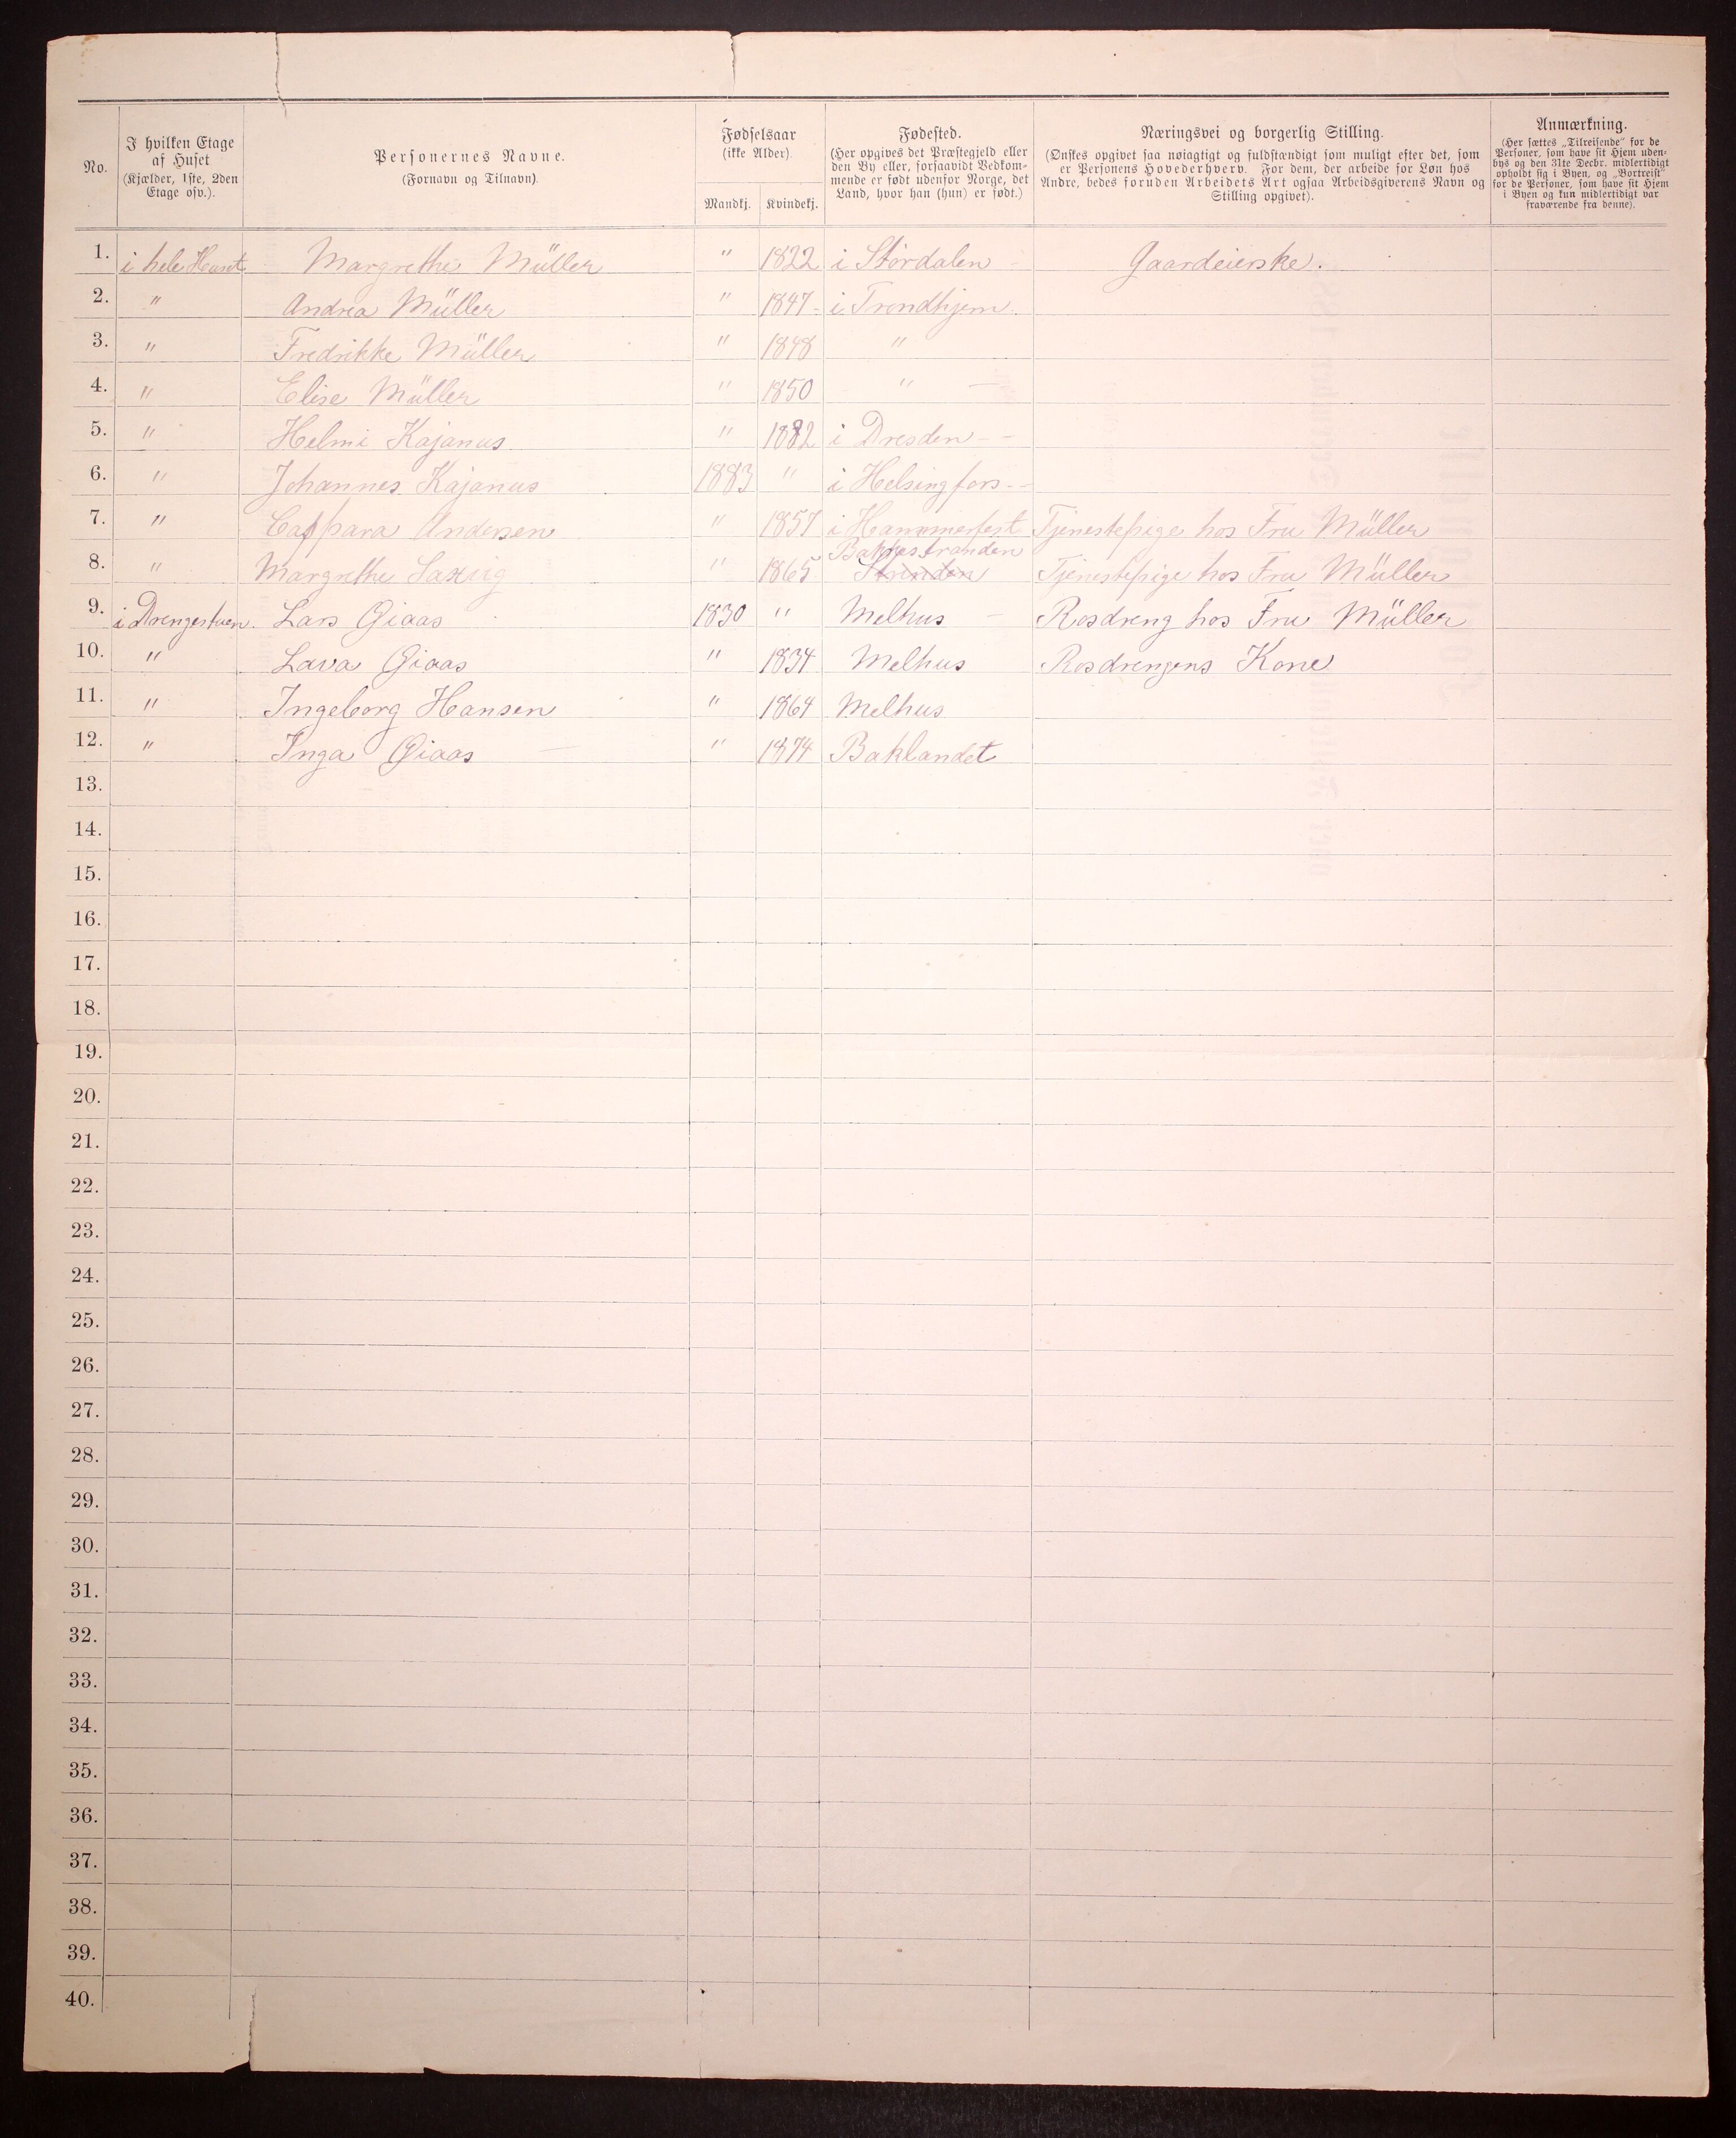 No.
I hvilken Etage
af Huset
(Kjælder, 1ste, 2den
Etage osv.).
Personernes Navne.
(Fornavn og Tilnavn).
Fødselsaar
(ikke Alder).
Mandkj. Kvindekj.
Fødested.
(Her opgives det Præstegjeld eller
den By eller, forsaavidt Vedkom-
mende er født udenfor Norge, det
Land, hvor han (hun) er født.)
Næringsvei og borgerlig Stilling.
(Ønskes opgivet saa nøiagtigt og fuldstændigt som muligt efter det, som
er Personens Hovederhverv. For dem, der arbeide for Løn hos
Andre, bedes foruden Arbeidets Art ogsaa Arbeidsgiverens Navn og
Stilling opgivet).
Anmærkning.
(Her sættes „Tilreisende" for de
Personer, som have sit Hjem uden-
bys og den 31te Decbr. midlertidigt
opholdt sig i Byen, og „Bortreist"
for de Personer, som have sit Hjem
i Byen og kun midlertidigt var
fraværende fra denne).
1. i hele Huset Margrethe Müller " 1822 i Stördalen - Gaardeierske.
2. " Andrea Müller " 1847 - i Trondhjem.
3. " Fredrikke Müller " 1848 "
4. " Elise Müller " 1850 " -
5. " Helmi Kajanus " 1882 i Dresden - -
6. " Johannes Kajanus 1883 " i Helsingfors. -
7. " Andersen " 1857 i Hammerfest Tjenestepige hos Fru Müller
Bakkestranden
8. " Margrethe Saxvig " 1865 Strinden Tjenestepige hos Fru Müller
9. i Drengestuen. Lars Giaas 1830 " Melhus - Rosdreng hos Fru Müller
10. " Lava Giaas " 1834 Melhus Rosdrengens Kone
11. " Ingeborg Hansen " 1864 Melhus
12. " Inga Giaas - " 1874 Baklandet
13.
14.
15.
16.
17.
18.
19.
20.
21.
22.
23.
24.
25.
26.
27.
28.
29.
30.
31.
32.
33.
34.
35.
36.
37.
38.
39.
40.